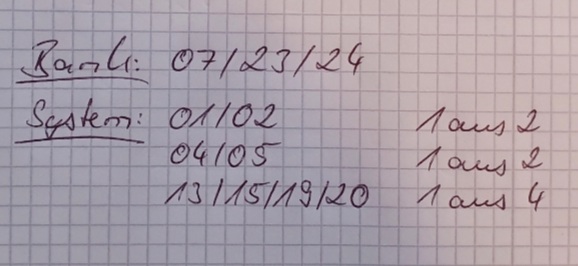 Bank: 07/23/24
System: 01/02 1 aus 2
04/05 1 aus 2
13/15/19/20 1 aus 4